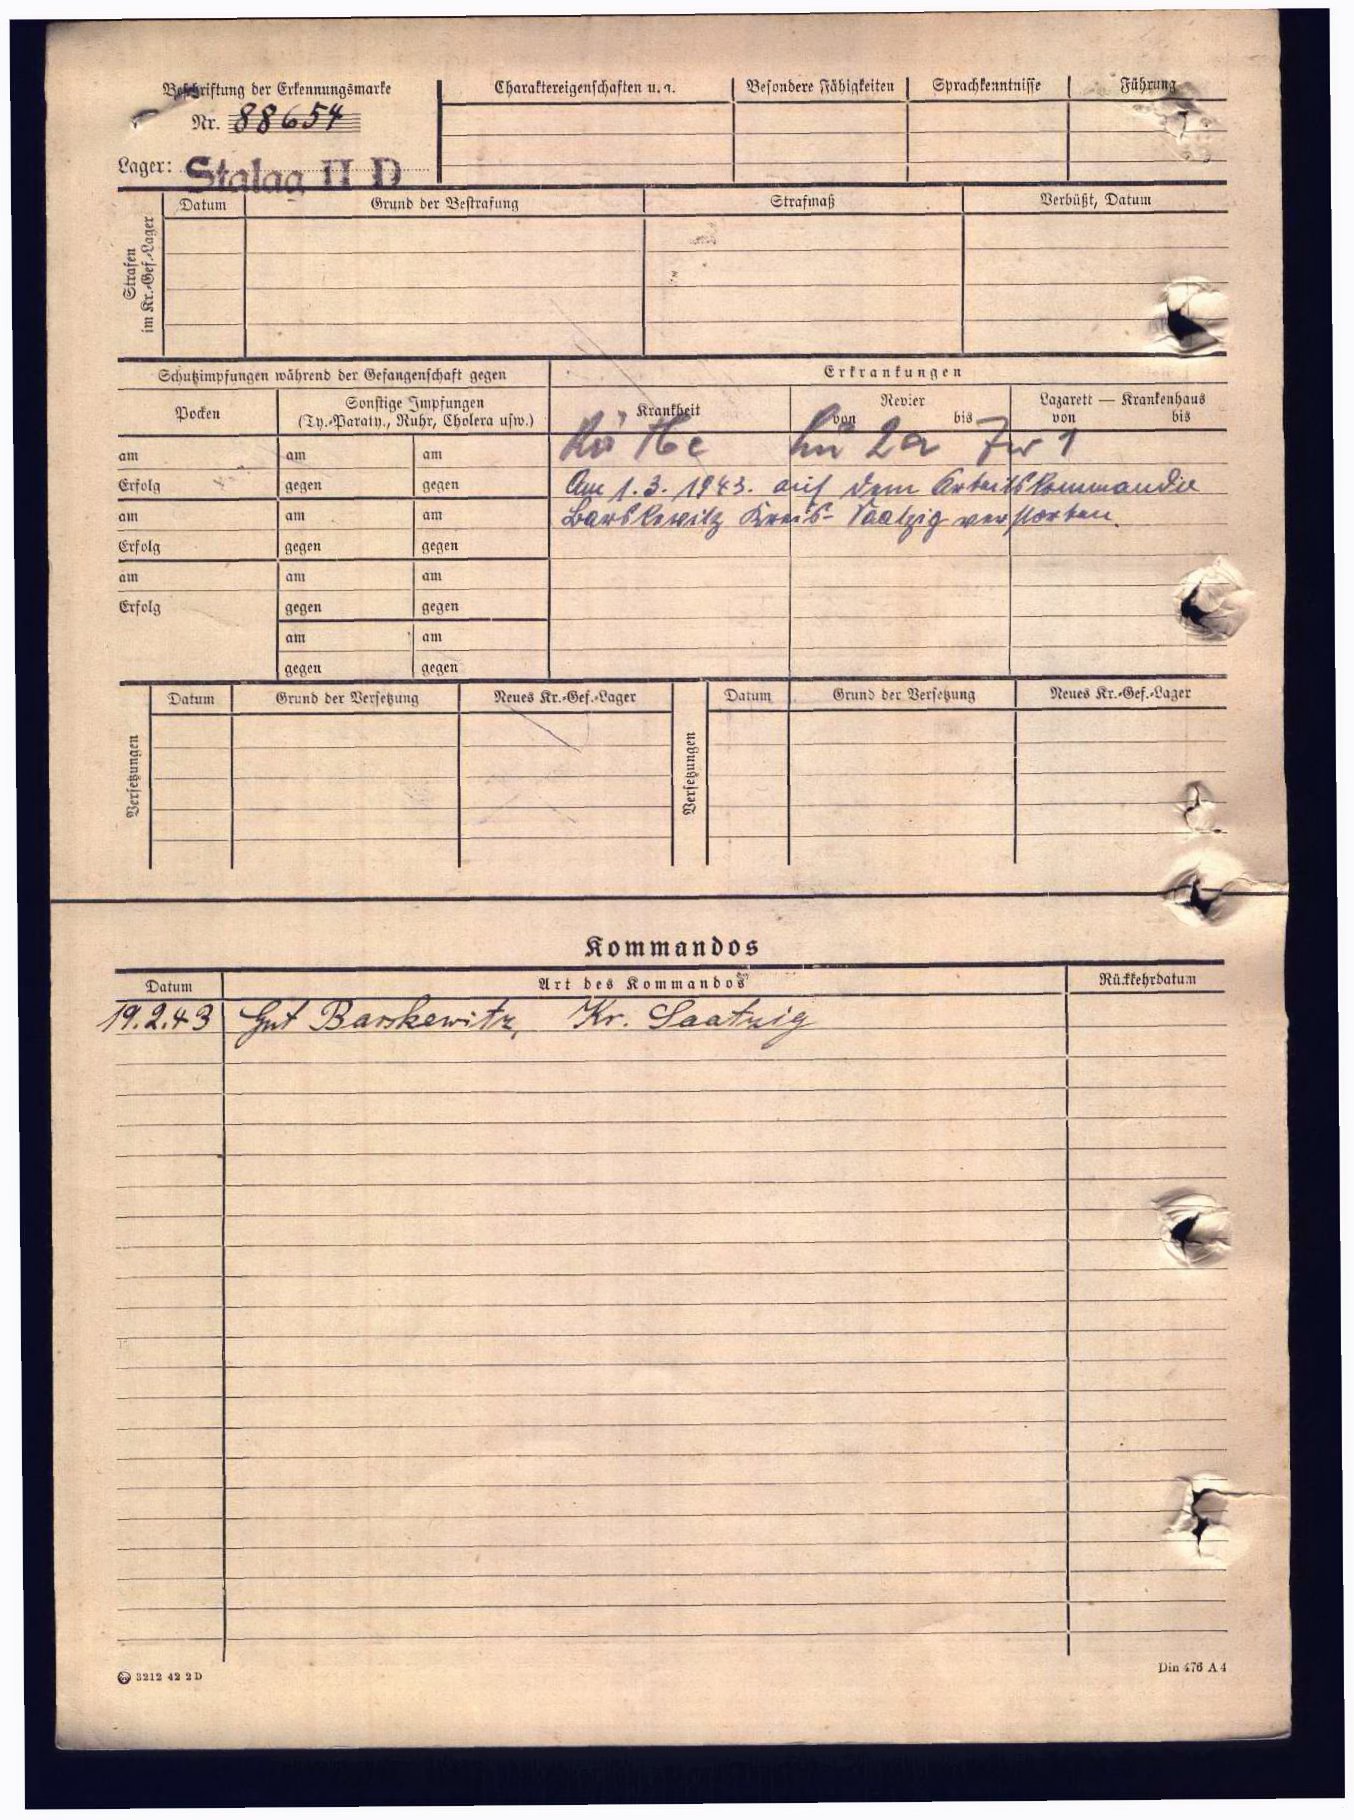 Beschriftung der Erkennungsmarke
Nr. 88654
Lager: Stalag II D
Charaktereigenschaften u. a. Besondere Fähigkeiten Sprachkenntnisse Führung
Strafen im Kr.-Gef.-Lager
Datum Grund der Bestrafung Strafmaß Verbüßt, Datum
Schutzimpfungen während der Gefangenschaft gegen
Erkrankungen
Pocken
Sonstige Impfungen
(Ty.-Paraty., Ruhr, Cholera usw.)
Krankheit
Revier
von bis
Lazarett — Krankenhaus
von bis
am am am
Erfolg gegen gegen
am am am
Erfolg gegen gegen
am am am
Erfolg gegen gegen
am am
gegen gegen
2a 1
Am 1.3.1943. auf dem Arbeitskommando
Barskewitz Kreis- Saatzig verstorben.
Versetzungen
Datum Grund der Versetzung Neues Kr.-Gef.-Lager
Versetzungen
Datum Grund der Versetzung Neues Kr.-Gef.-Lager
Kommandos
Datum Art des Kommandos Rückkehrdatum
19.2.43 Gut Barskewitz, Kr. Saatzig
3212 42 2 D
Din 476 A 4